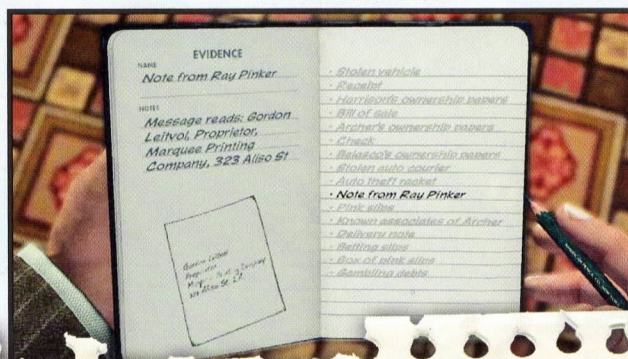 EVIDENCE
NAME
Note from Ray Pinker
NOTES
Message reads: Gordon
Leitvol, Proprietor,
Marquee Printing
Company, 323 Aliso St
Gordon Leitvol
Proprietor
Company
Aliso St.
· Stolen vehicle
· Receipt
· Harrison's ownership papers
· Bill of sale
· Archer's ownership papers
· Check
· Belasco's ownership papers
· Stolen auto courier
· Auto theft racket
· Note from Ray Pinker
· Pink slips
· Known associates of Archer
· Delivery note
· Betting slips
· Box of pink slips
· Gambling debts